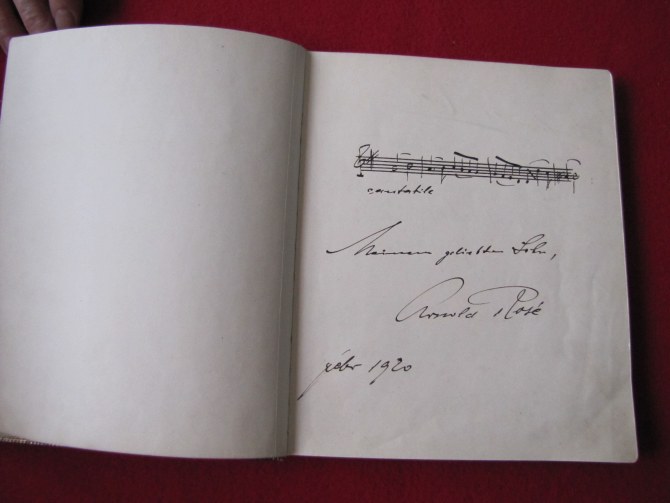 cantabile
Meinem geliebten Sohn,
Arnold Rosé
febr 1920